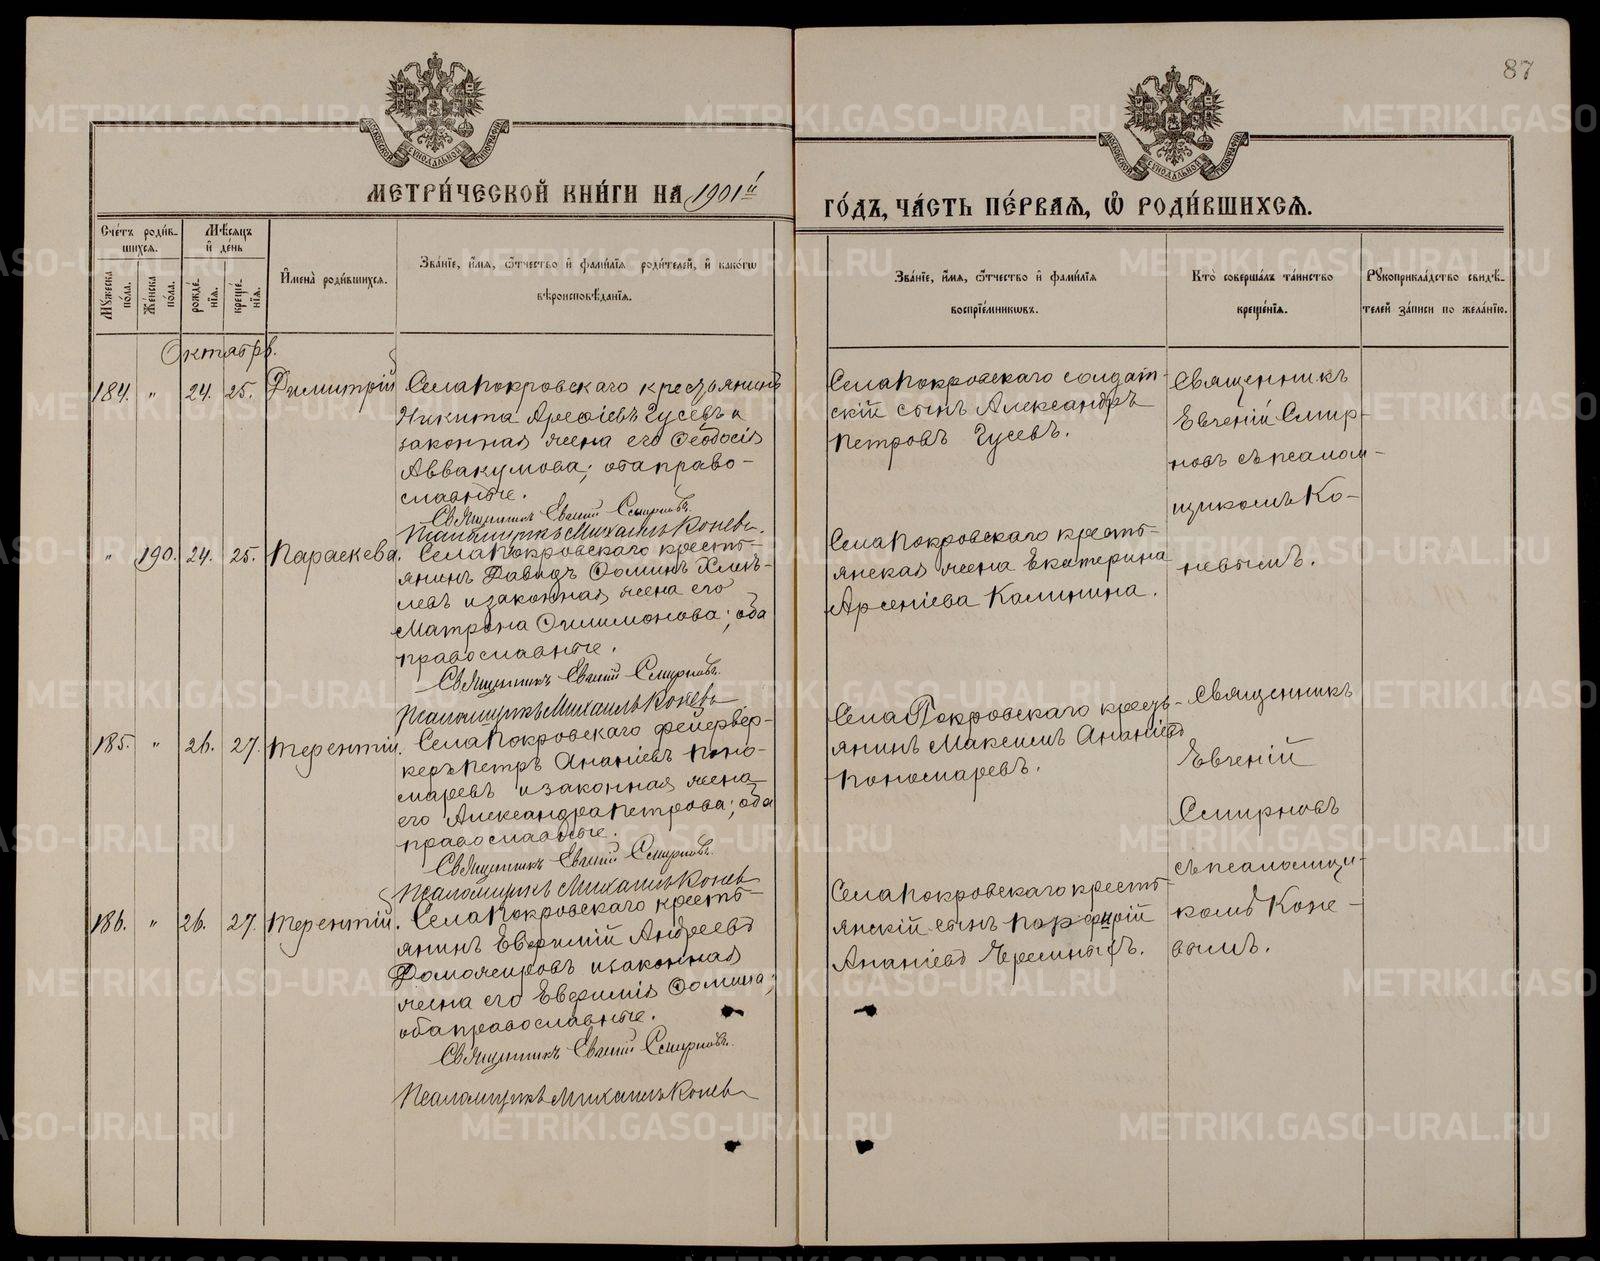 87
МОСКОВСКОЙ СѴНОДАЛЬНОЙ ТИПОГРАФІИ
МОСКОВСКОЙ СѴНОДАЛЬНОЙ ТИПОГРАФІИ
МЕТРИ́ЧЕСКОЙ КНИ́ГИ НА 1901й
ГО́ДЪ, ЧА́СТЬ ПЕ́РВАѦ, Ѽ РОДИ́ВШИХСѦ.
Сче́тъ роди́в-
шихсѧ.
Мѣ́сѧцъ
и҆ де́нь
Мꙋ́жеска
по́ла.
Же́нска
по́ла.
рожде́-
нїѧ.
креще́-
нїѧ.
И҆мена̀ роди́вшихсѧ.
Зва́нїе, и҆́мѧ, ѻ҆́тчество и҆ фами́лїѧ роди́телей, и҆ како́гѡ
вѣроисповѣ́данїѧ.
Зва́нїе, и҆́мѧ, ѻ҆́тчество и҆ фами́лїѧ
воспрїе́мникѡвъ.
Кто̀ соверша́лъ та́инство
креще́нїѧ.
Рꙋкоприкла́дство свидѣ́-
телей за́писи по жела́нїю.
Октябрь.
184. " 24. 25. Димитрій
Села Покровскаго крестьянинъ
Никита Арефіевъ Гусевъ и
законная жена его Ѳеодосія
Аввакумова; оба право-
славные.
Священникъ Евгеній Смирновъ.
Псаломщикъ Михаилъ Коневъ.
Села Покровскаго солдат-
скій сынъ Александръ
Петровъ Гусевъ.
Священникъ
Евгеній Смир-
новъ съ псалом-
щикомъ Ко-
невымъ.
" 190. 24. 25. Параскева.
Села Покровскаго кресть-
янинъ Давидъ Ѳоминъ Хмѣ-
левъ и законная жена его
Матрона Филимонова; оба
православные.
Священникъ Евгеній Смирновъ.
Псаломщикъ Михаилъ Коневъ
Села Покровскаго кресть-
янская жена Екатерина
Арсеніева Калинина.
185. " 26. 27. Терентій.
Села Покровскаго фейервер-
керъ Петръ Ананіевъ Поно-
маревъ и законная жена
его Александра Петрова; оба
православные.
Священникъ Евгеній Смирновъ.
Псаломщикъ Михаилъ Коневъ
Села Покровскаго кресть-
янинъ Максимъ Ананіевъ
Пономаревъ.
Священникъ
Евгеній
Смирновъ
съ псаломщи-
комъ Коне-
вымъ.
186. " 26. 27. Терентій.
Села Покровскаго кресть-
янинъ Евфимій Андреевъ
Доможировъ и законная
жена его Евфимія Ѳомина;
оба православные.
Священникъ Евгеній Смирновъ.
Псаломщикъ Михаилъ Коневъ
Села Покровскаго кресть-
янскій сынъ Порфирій
Ананіевъ Черемныхъ.
METRIKI.GASO-URAL.RU